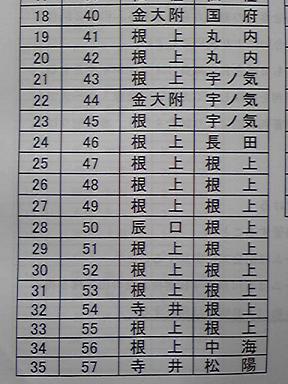 18 40 金大附 国府
19 41 根上 丸内
20 42 根上 丸内
21 43 根上 宇ノ気
22 44 金大附 宇ノ気
23 45 根上 宇ノ気
24 46 根上 長田
25 47 根上 根上
26 48 根上 根上
27 49 根上 根上
28 50 辰口 根上
29 51 根上 根上
30 52 根上 根上
31 53 根上 根上
32 54 寺井 根上
33 55 根上 根上
34 56 根上 中海
35 57 寺井 松陽